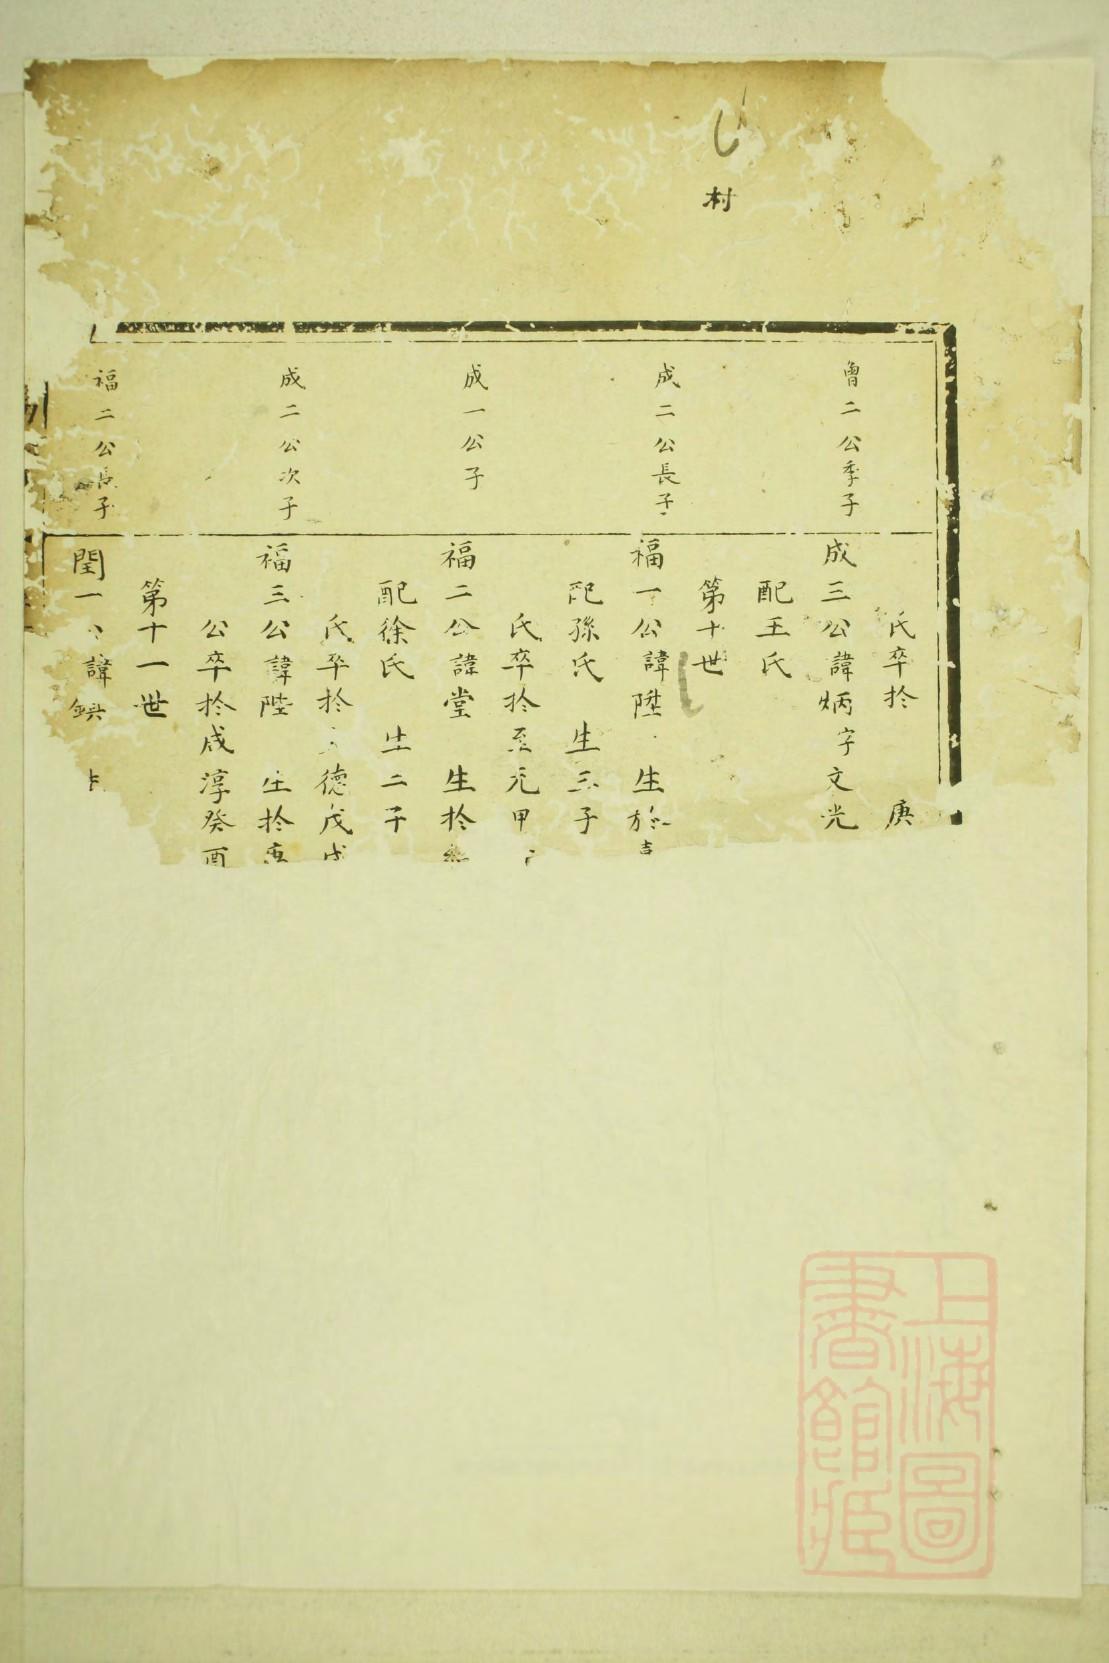 村
氏卒扵 庚
魯二公季子
成三公諱炳字文光
配王氏
第十世
成二公長子
福一公諱陞 生扵
配孫氏 生三子
氏卒扵至元甲
成一公子
福二公諱堂 生扵
配徐氏 生二子
氏卒扵 德戊戌
成二公次子
福三公諱陸 生扵
公卒扵咸淳癸酉
第十一世
福二公長子
閏一公諱
上海圖
書館藏